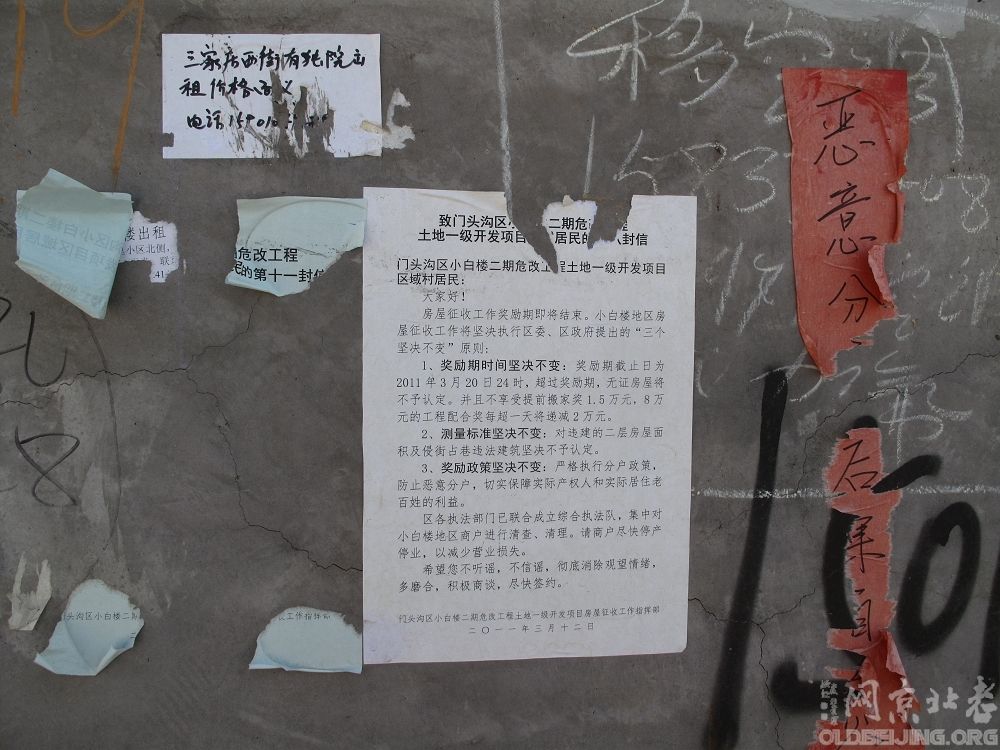 三家店西街有独院出
租价格面议
电话15901
楼出租
小区北侧,
联:
41
危改工程
民的第十一封信
致门头沟区小 二期危
土地一级开发项目 居民的 封信
门头沟区小白楼二期危改工程土地一级开发项目
区域村居民:
大家好!
房屋征收工作奖励期即将结束。小白楼地区房
屋征收工作将坚决执行区委、区政府提出的“三个
坚决不变”原则:
1、奖励期时间坚决不变:奖励期截止日为
2011年3月20日24时,超过奖励期,无证房屋将
不予认定。并且不享受提前搬家奖1.5万元,8万
元的工程配合奖每超一天将递减2万元。
2、测量标准坚决不变:对违建的二层房屋面
积及侵街占巷违法建筑坚决不予认定。
3、奖励政策坚决不变:严格执行分户政策,
防止恶意分户,切实保障实际产权人和实际居住老
百姓的利益。
区各执法部门已联合成立综合执法队,集中对
小白楼地区商户进行清查、清理。请商户尽快停产
停业,以减少营业损失。
希望您不听谣,不信谣,彻底消除观望情绪,
多磨合,积极商谈,尽快签约。
门头沟区小白楼二期危改工程土地一级开发项目房屋征收工作指挥部
二〇一一年三月十二日
门头沟区小白楼二期
工作指挥部
恶意分
后果自
老北京网
OLDBEIJING.ORG